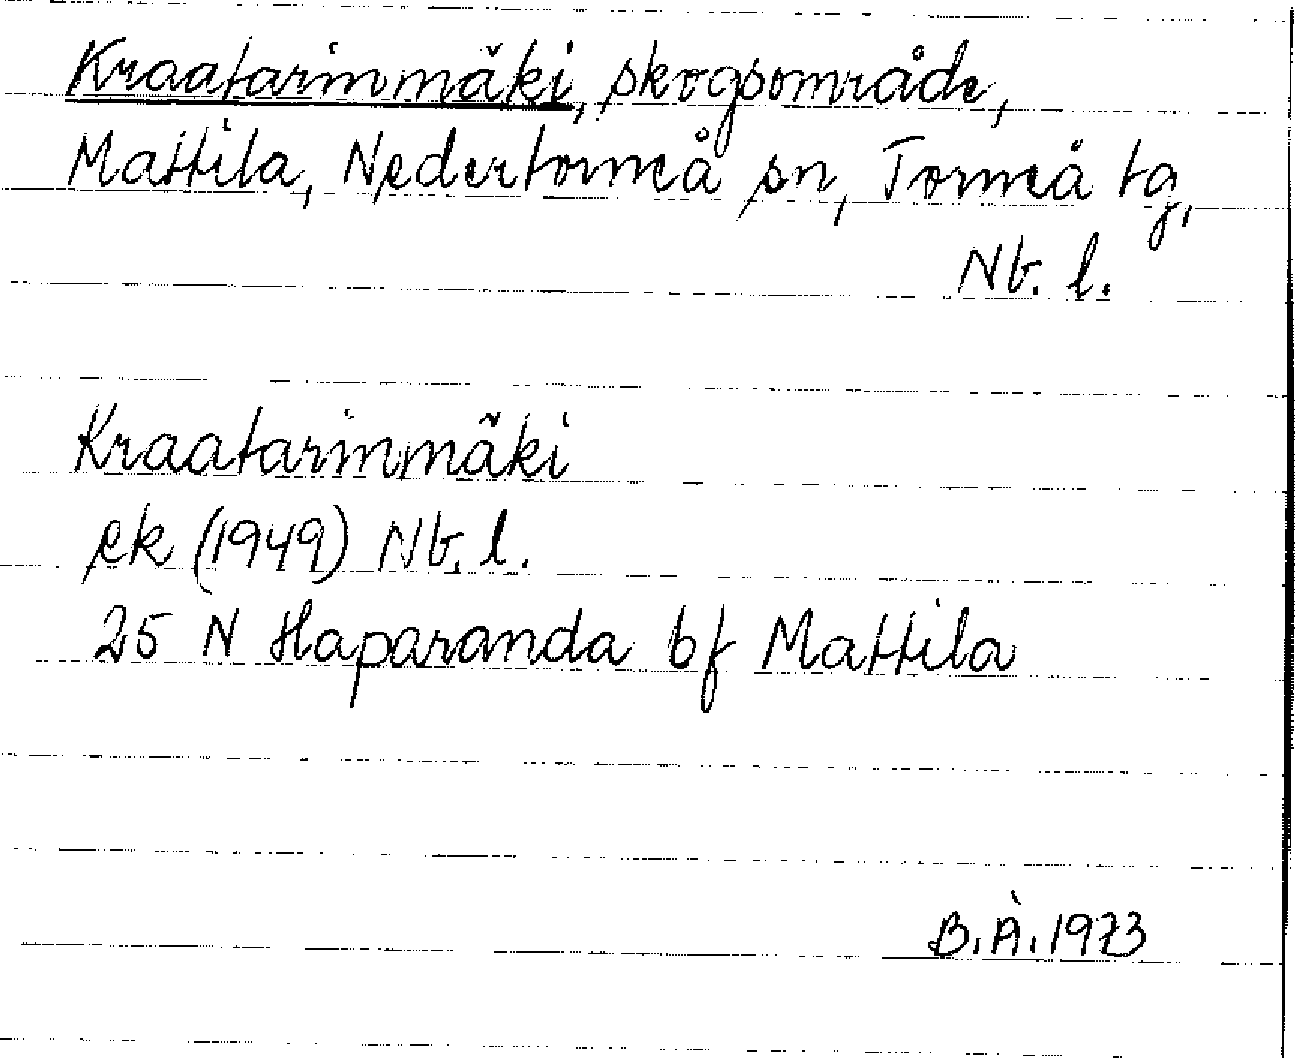 Kraatarinmäki, skogsområde,
Mattila, Nedertorneå sn, Torneå tg,
Nb. l.
Kraatarinmäki
ek (1949) Nb. l.
25 N Haparanda bf Mattila
B.Å. 1973